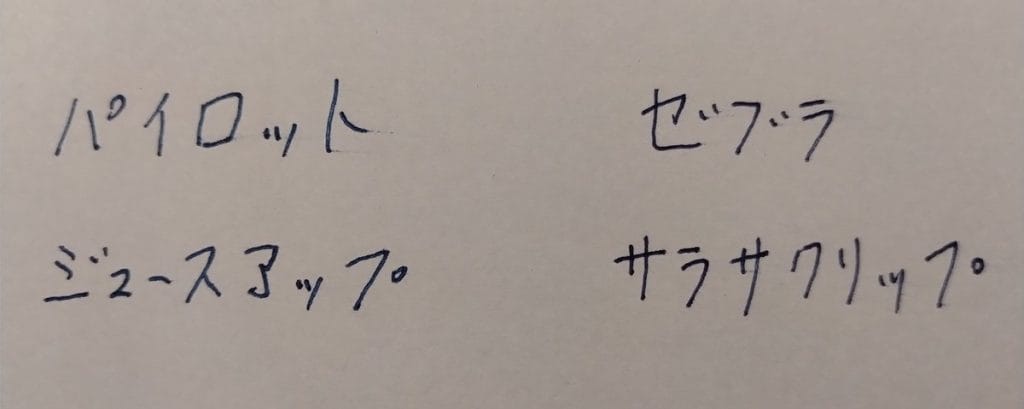 パイロット
ジュースアップ
ゼブラ
サラサクリップ